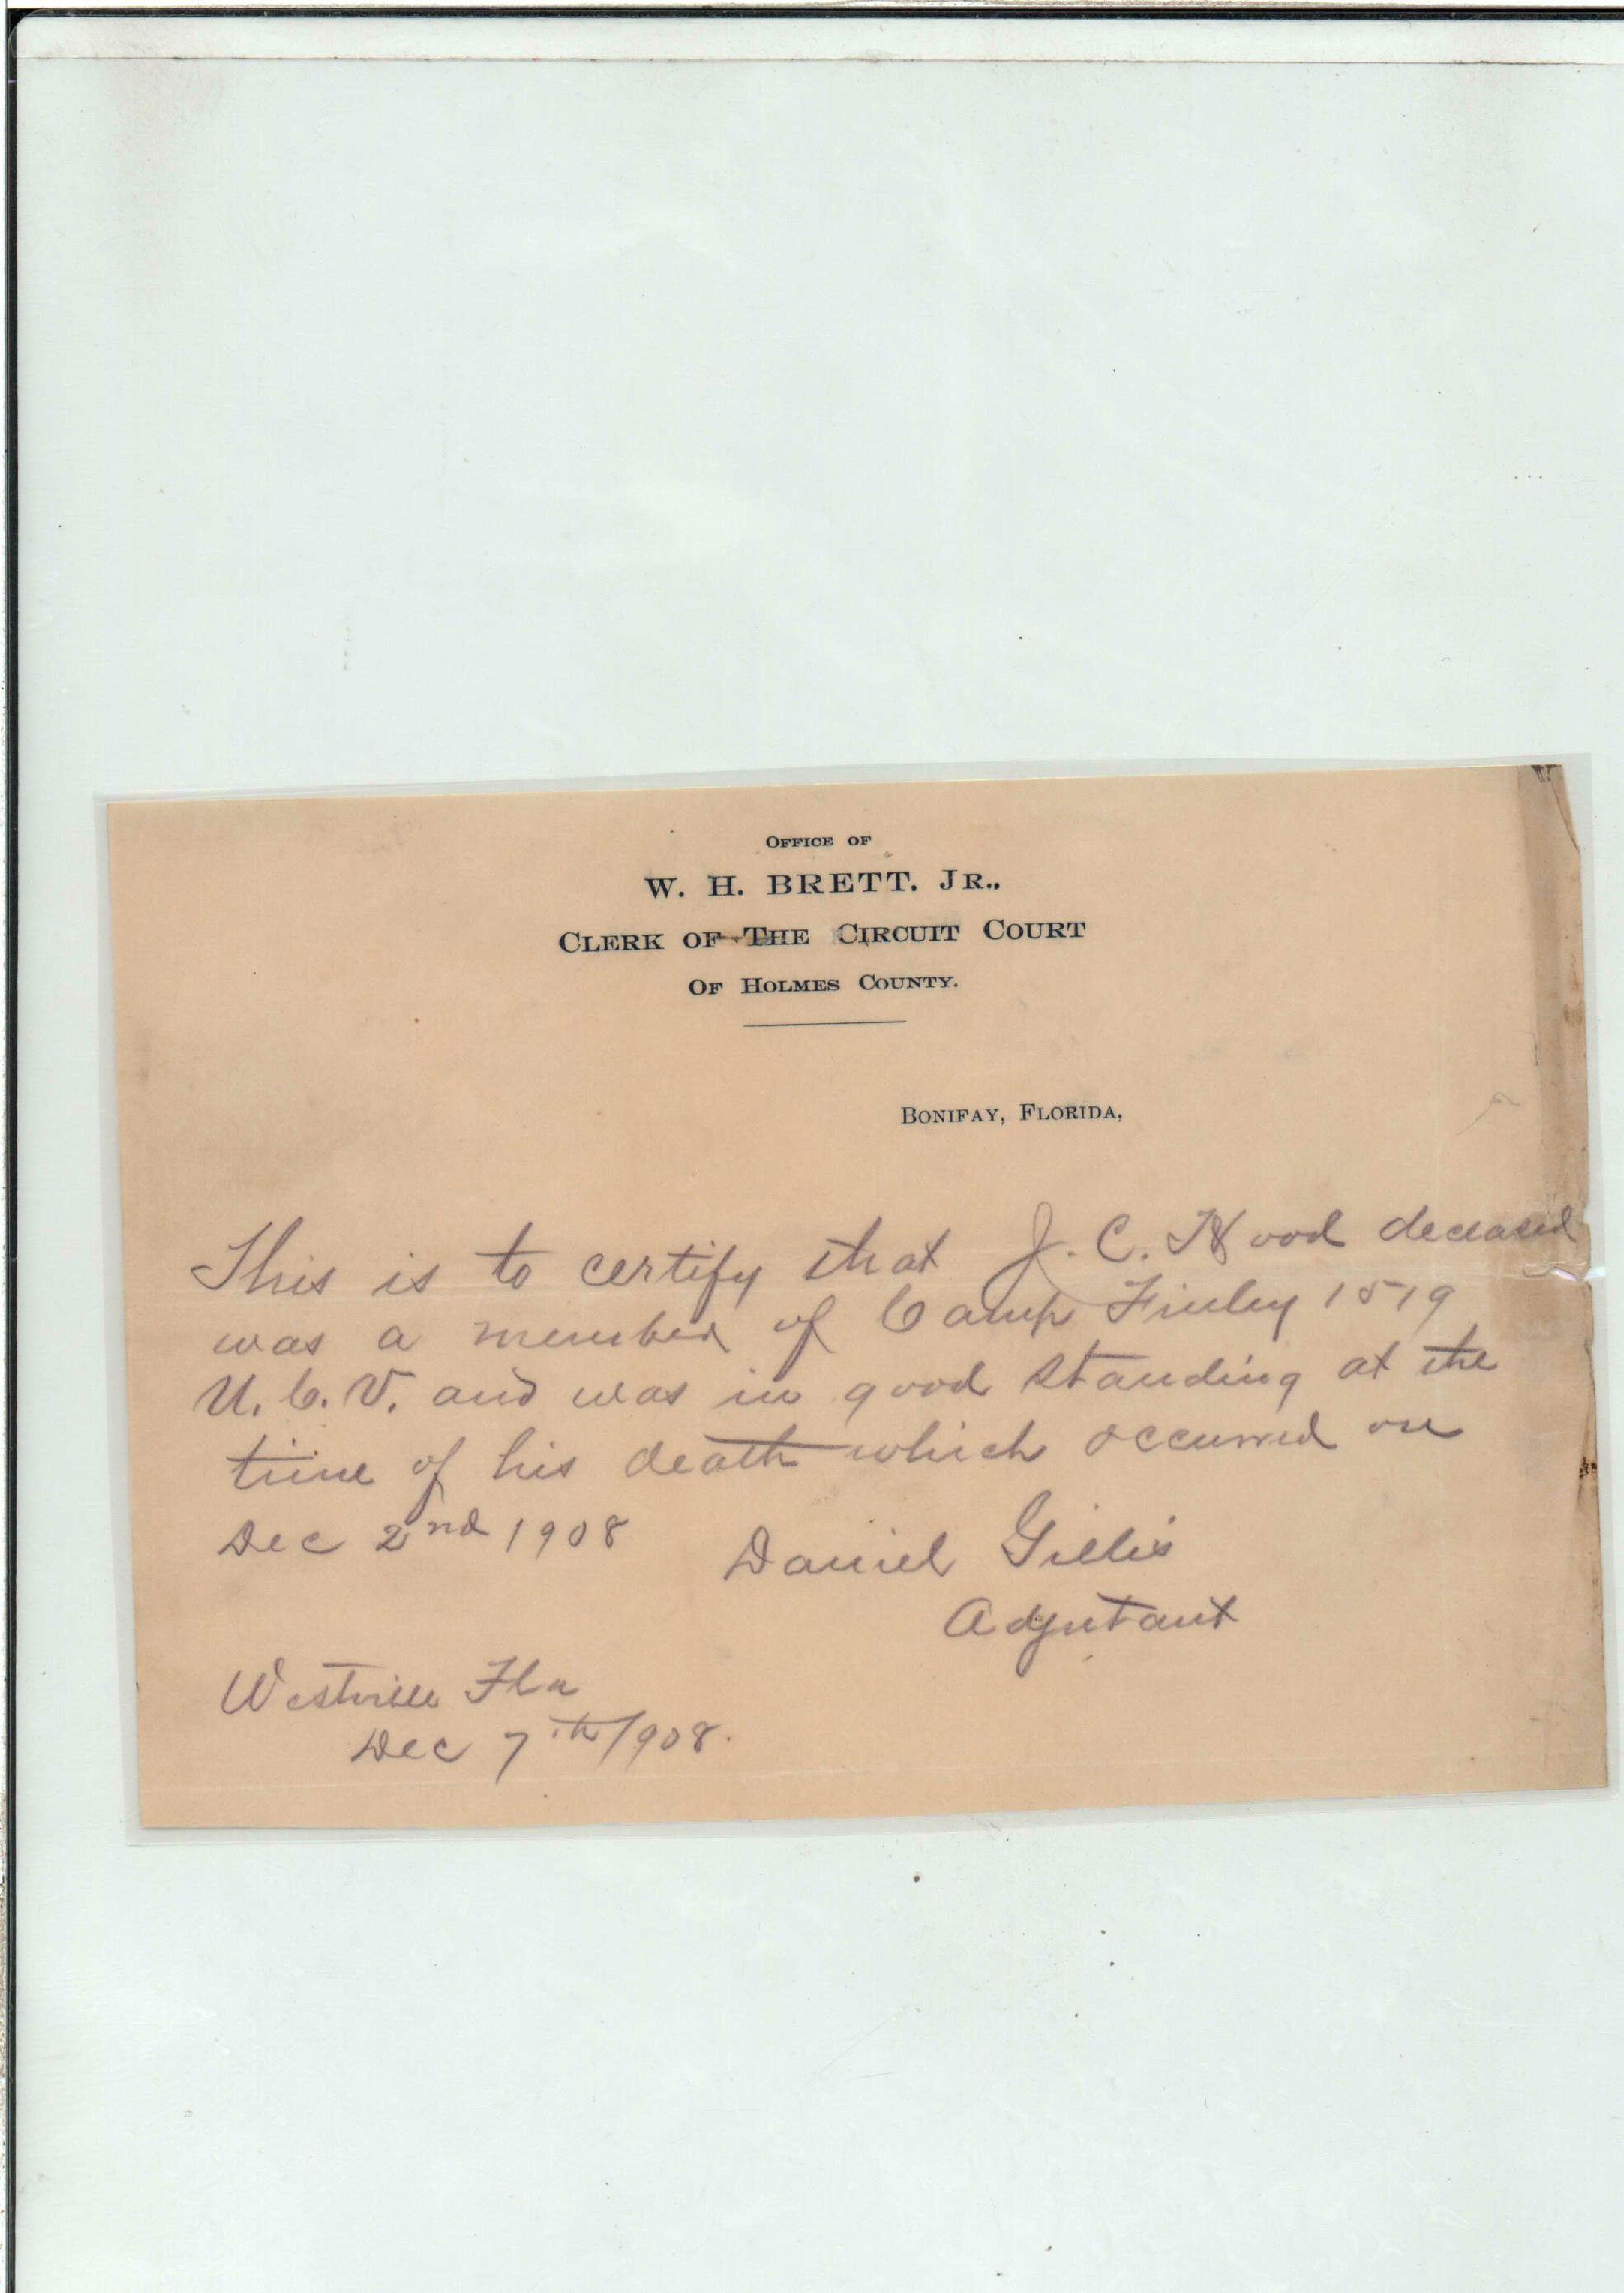 OFFICE OF
W. H. BRETT. JR.,
CLERK OF THE CIRCUIT COURT
OF HOLMES COUNTY.
BONIFAY, FLORIDA,
This is to certify that J. C. Wood deceased
was a member of Camp Finley 1519
U. C. V. and was in good standing at the
time of his death which occurred on
Dec 2nd 1908
Daniel Gillis
Adjutant
Westville Fla
Dec 7th 1908.